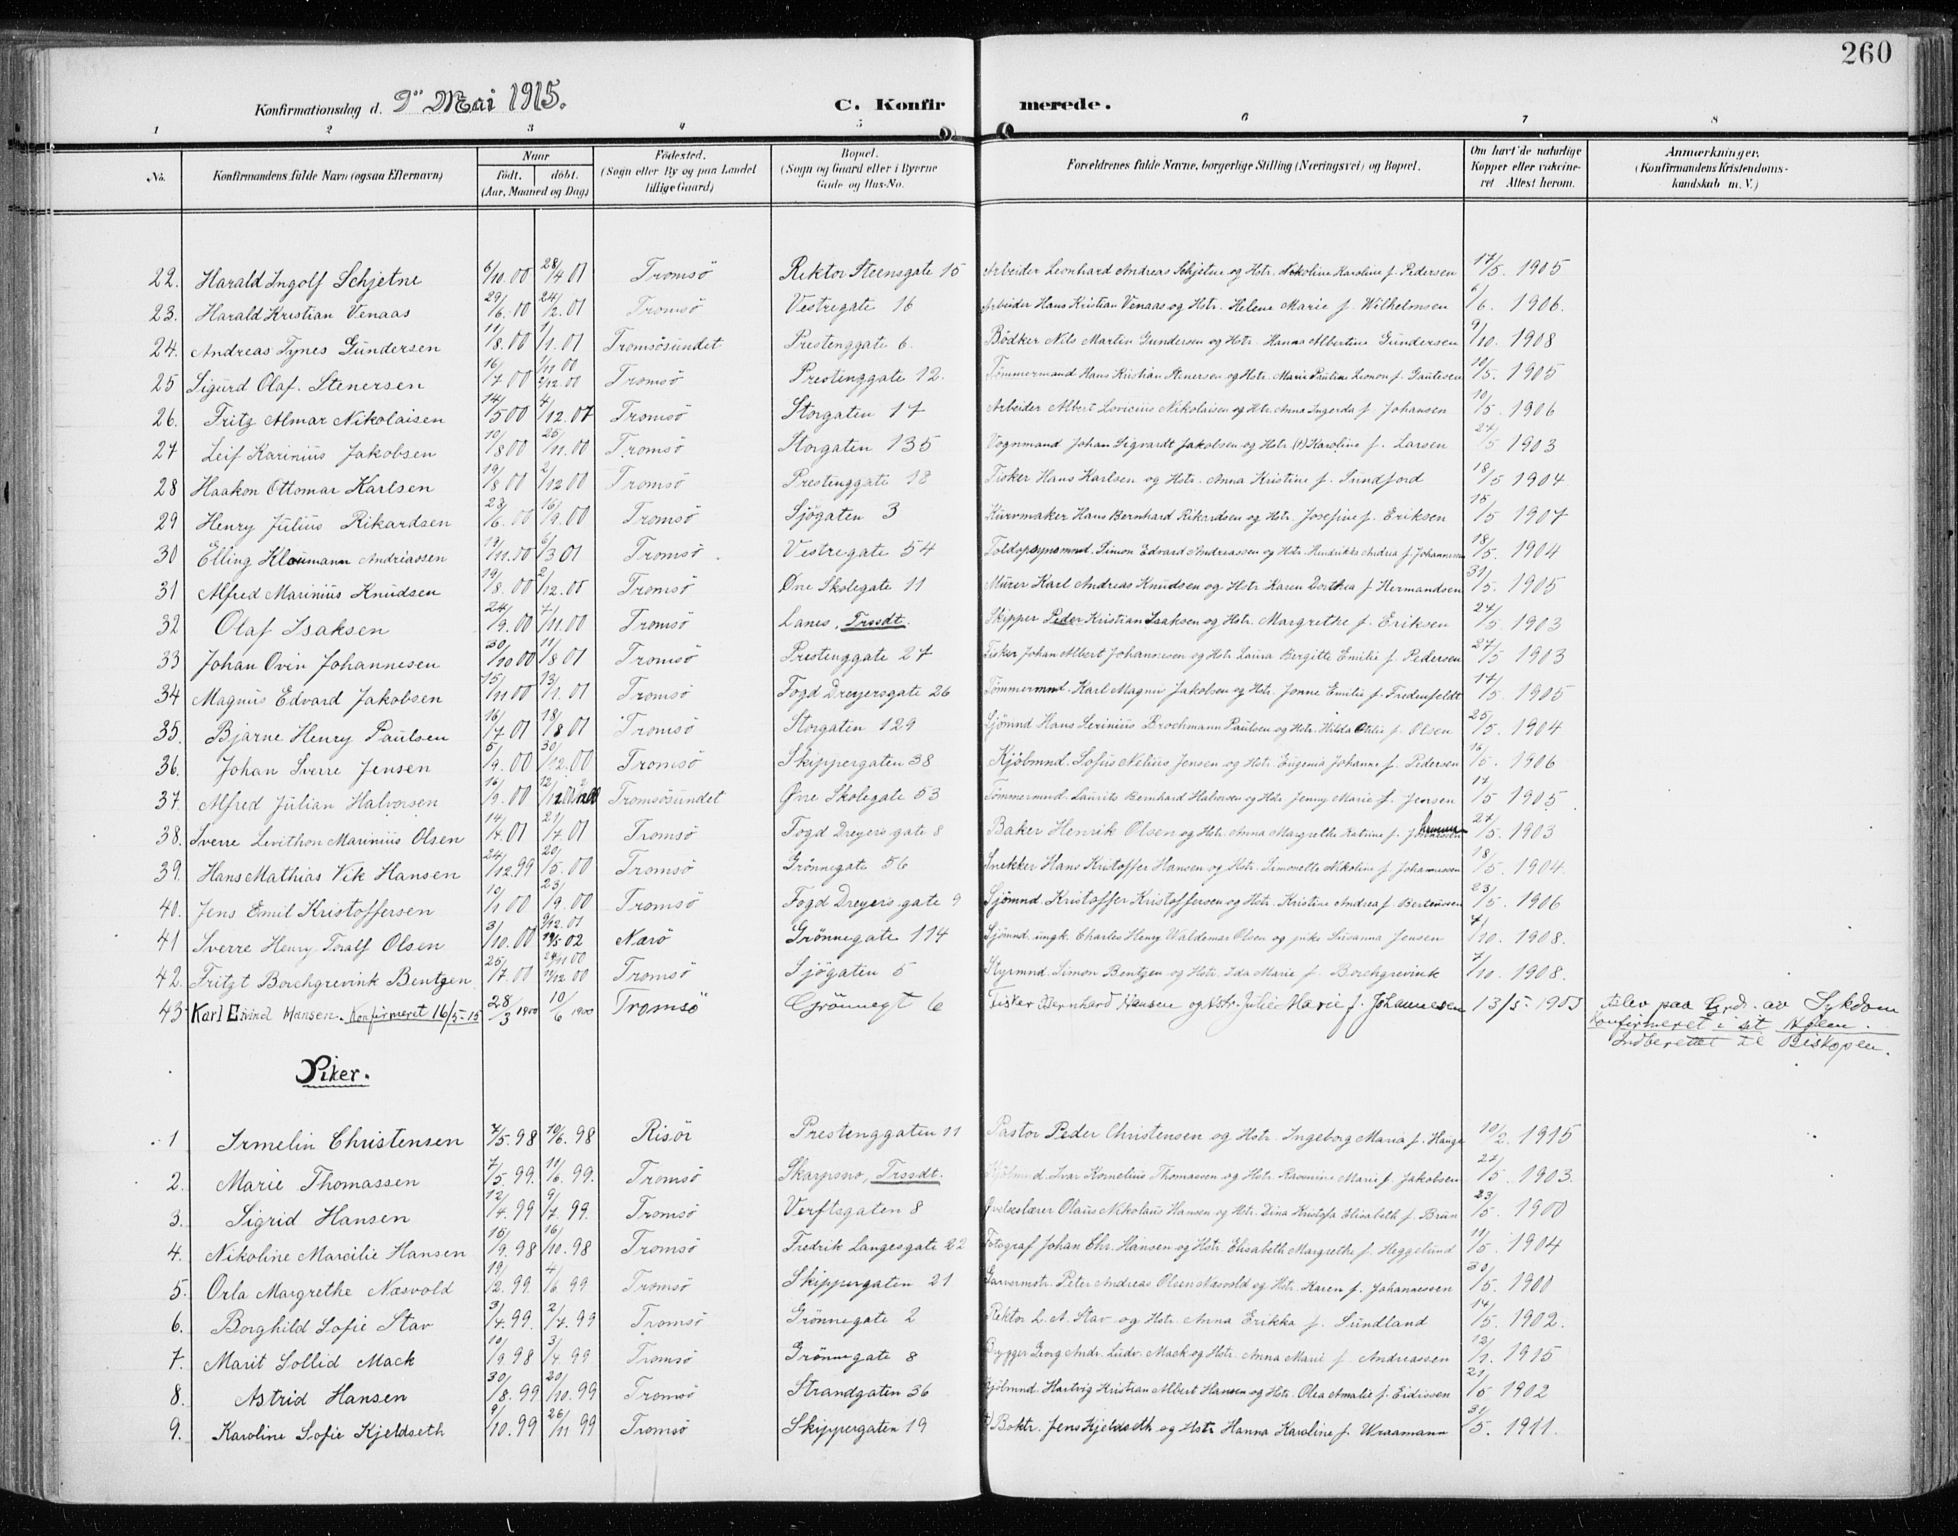 260
Konfirmationsdag d. 9de Mai 1915.
C. Konfirmerede.
1 2 3 4 5 6 7 8
No. Konfirmandens fulde Navn (ogsaa Efternavn) Naar født. døbt. (Aar, Maaned og Dag) Fødested. (Sogn eller By og paa Landet tillige Gaard) Bopæl. (Sogn og Gaard eller i Byerne Gade og Hus-No. Forældrenes fulde Navne, borgerlige Stilling (Næringsvei) og Bopæl. Om havt de naturlige Kopper eller vakcineret Attest herom. Anmærkninger. (Konfirmandens Kristendomskundskab m. V.)
22. Harald Ingolf Schjetne 6/10.00 28/4 01 Tromsö Rektor Steensgate 15 Arbeider Leonhard Andreas Schjetne og Hstr. Nikoline Karoline f. Pedersen 17/5. 1905
23. Harald Kristian Venaas 29/6.00 24/2.01 Tromsö Vestregate 16 Arbeider Hans Kristian Venaas og Hstr. Helene Marie f. Wilhelmsen 6/6. 1906.
24. Andreas Tynes Gundersen 11/8.00 1/1.01 Tromsösundet Prestenggate 6. Bödker Nils Martin Gundersen og Hstr. Hanna Albertine Gundersen 9/10. 1908
25 Sigurd Olaf. Stenersen 16/7 00 1/11 00 3/12.00 Tromsö Prestenggate 12. Tömmermand Hans Kristian Stenersen og Hstr. Marie Pauline Leonon f. Gautesen 10/5. 1905
26. Fritz Almar Nikolaisen 14/5 00 4/12.07 Tromsö Storgaten 17 Arbeider Albert Lovicius Nikolaisen og Hstr. Anna Ingerda f. Johansen 10/5. 1906
27 Leif Karinius Jakobsen 10/8 00 25/11.00 Tromsö Storgaten 135 Vognmand Johan Sigvardt Jakobsen og Hstr. (†) Karoline f. Larsen 27/5 1903
28 Haakon Ottomar Karlsen 19/8 00 2/12 00 Tromsö Prestenggate 18 Fisker Hans Karlsen og Hstr. Anna Kristine f. Sundfjord 18/5 1904
29 Henry Julius Rikardsen 23/6.00 16/9.00 Tromsö Sjögaten 3 Kurvmaker Hans Bernhard Rikardsen og Hstr. Josefine f. Eriksen 15/5 1907
30 Elling Kloumann Andreassen 19/11.00 6/3 01 Tromsö Vestregate 54 Toldopsynsmnd. Simon Edvard Andreassen og Hstr. Hendrikke Andrea f. Johannesen 18/5. 1904
31 Alfred Marinius Knudsen 19/8.00 2/12.05 Tromsö Øvre Skolegate 11 Murer Karl Andreas Knudsen og Hstr. Karen Dorthea f. Hermandsen 31/5. 1905
32 Olaf Isaksen 24/9.00 7/11.00 Tromsö Lanes, Trssdt. Skipper Peder Kristian Isaksen og Hstr. Margrethe f. Eriksen 27/5. 1903
33 Johan Ovin Johannesen 30/10 00 11/8 01 Tromsö Prestenggate 27 Fisker Johan Albert Johannesen og Hstr. Laura Bergitte Emilie f. Pedersen 27/5 1903
34 Magnus Edvard Jakobsen 15/11 00 13/1.01 Tromsö Fogd Dreyersgate 26 Tömmermnd. Karl Magnus Jakobsen og Hstr. Jonne Emilie f. Fredenfeldt 17/5. 1905
35. Bjarne Henry Paulsen 16/7 01 18/8 01 Tromsö Storgaten 129 Sjömnd Hans Serinius Brochmann Paulsen og Hstr. Hilda Otilie f. Olsen 25/5. 1904
36. Johan Sverre Jensen 5/9.00 30/12.00 Tromsö Skippergaten 38 Kjöbmnd. Sofus Nelius Jensen og Hstr. Eugenia Johanne f. Pedersen 16/5. 1906
37. Alfred Julian Halvorsen 16/9.00 12/12 Tromsösundet Øvre Skolegate 53 Tömmermnd. Laurits Bernhard Halvorsen og Hstr. Jenny Marie f. Jensen 17/5 1905
38. Sverre Levithon Marinius Olsen 14/4.01 21/7 01 Tromsö Fogd Dreyers gate 8 Baker Henrik Olsen og Hstr. Anna Margrethe Katrine f. 27/5. 1903
39. Hans Mathias Vik Hansen 24/12.99 20/5.00 Tromsö Grönnegate 56 Snekker Hans Kristoffer Hansen og Hstr. Simonette Nikoline f. Johannessen 18/5. 1904.
40. Jens Emil Kristoffersen 10/1 00 23/9.00 Tromsö Fogd Dreyers gate 9 Sjömnd. Kristoffer Kristoffersen og Hstr. Kristine Andrea f. Berteussen 23/5. 1906
41 Sverre Henry Toralf Olsen 3/10.00 9/12.01 19/5 02 Nærö Grönnegate 114 Sjömnd. ungk. Charles Henry Waldemar Olsen og pike Susanna Jensen 7/10. 1908.
42. Fritzt Borchgrevink Bentzen 25/7.00 24/11 00 17/12 00 Tromsö Sjögaten 5 Styrmnd. Simon Bentzen og Hstr. Ida Marie f. Borchgrevink 7/10. 1908.
43. Karl Eivind Hansen. Konfirmeret 16/5-15 28/3 1900 10/6 1900 Tromsö Grönnegt 6 Fisker Bernhard Hansen og Hstr. Julie Marie f. Johannesen 13/5 1903 Blev paa Grd. av Sykdom
Konfirmeret i sit Hjem.
Indberettet til Biskopen.
Piker.
1 Irmelin Christensen 7/5.98 19/6.98 Risör Prestenggaten 11 Pastor Peder Christensen og Hstr. Ingeborg Maria f. Hauge 10/2. 1915
2. Marie Thomassen 7/5.99. 11/6.99. Tromsö Skarpsno, Trssdt. Kjöbmnd. Ivar Kornelius Thomassen og Hstr. Rasmine Marie f. Jakobsen 27/5. 1903.
3. Sigrid Hansen 12/4.99 9/7.99. Tromsö Verftsgaten 8 Øvelseslærer Olaus Nikolaus Hansen og Hstr. Dina Kristofa Elisabeth f. Brun 23/5. 1900
4. Nikoline Marcilie Hansen 15/9.98 16/10.98 Tromsö Fredrik Langesgate 22 Fotograf Johan Chr. Hansen og Hstr. Elisabeth Margrethe f. Heggelund 11/5. 1904
5. Orla Margrethe Næsvold 19/2.99. 4/6 99 Tromsö Skippergaten 21 Garvermstr. Peter Andreas Olsen Næsvold og Hstr. Karen f. Johannessen 30/5. 1900
6. Borghild Sofie Stav 3/4.99. 2/4.99 Tromsö Grönnegate 2 Rektor L. A. Stav og Hstr. Anna Erikka f. Sundland 14/5. 1902.
7. Marit Sollid Mack 10/9.98 3/4.99 Tromsö Grönnegate 8 Brygger Georg Andr. Ludv. Mack og Hstr. Anna Marie f. Andreassen 12/1. 1915
8. Astrid Hansen 30/8.99 20/10.99 Tromsö Strandgaten 36 Kjöbmnd. Hartvig Kristian Albert Hansen og Hstr. Olea Amalie f. Eidissen 21/5 1902
9. Karoline Sofie Kjeldseth 9/10.99 26/11 99 Tromsö Skippergaten 19 Boktr. Jens Kjeldseth og Hstr Hanna Karoline f. Wraamann 31/5. 1911.